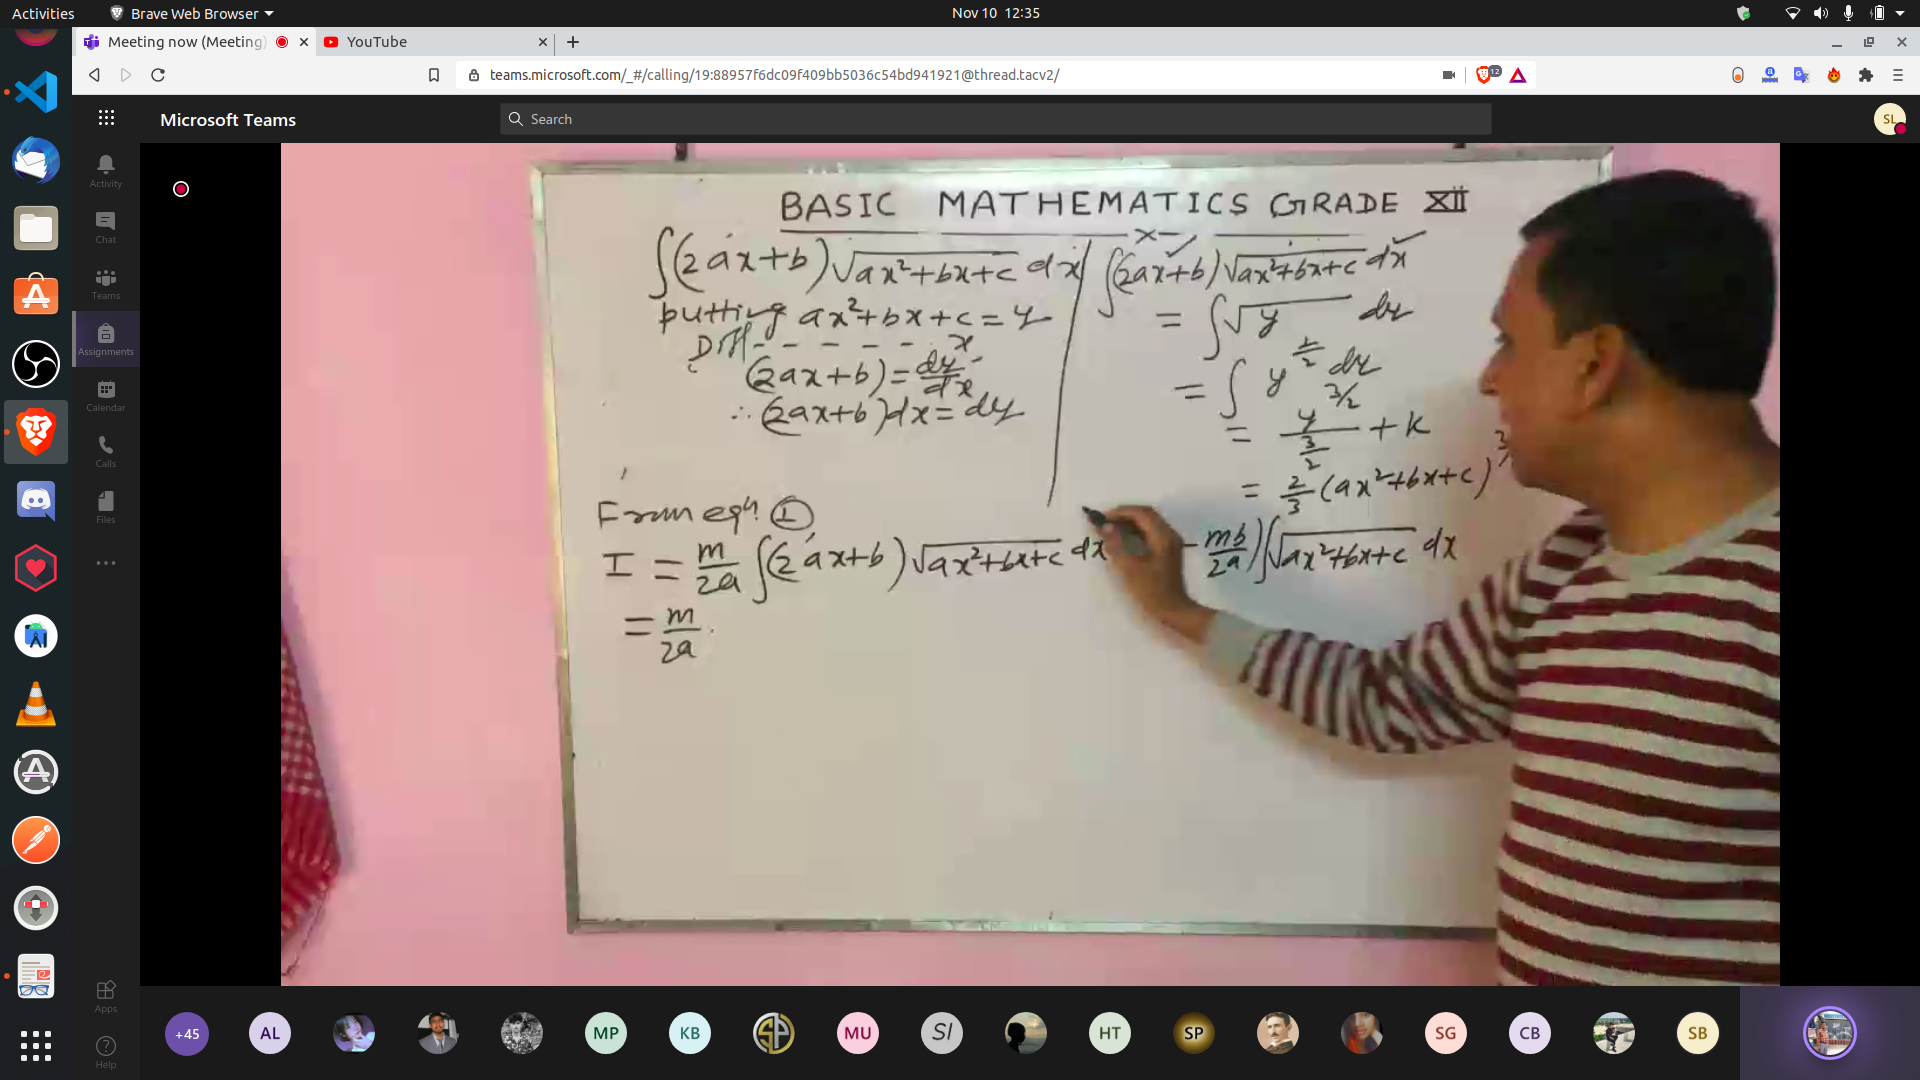 Activities
Brave Web Browser
Nov 10 12:35
Meeting now (Meeting)
YouTube
teams.microsoft.com/_#/calling/19:88957f6dc09f409bb5036c54bd941921@thread.tacv2/
12
Microsoft Teams
Search
SL
Activity
Chat
Teams
Assignments
Calendar
Calls
Files
Apps
Help
BASIC MATHEMATICS GRADE XII
∫(2ax+b)√(ax²+bx+c) dx
putting ax²+bx+c = y
Diff - - - - - x
(2ax+b) = dy/dx
∴ (2ax+b)dx = dy
∫(2ax+b)√(ax²+bx+c) dx
= ∫√y dy
= ∫ y^(1/2) dy
= y^(3/2)/(3/2) + k
= 2/3 (ax²+bx+c)
From eqn. ①
I = m/2a ∫(2ax+b)√(ax²+bx+c) dx - mb/2a) ∫√(ax²+bx+c) dx
= m/2a
+45
AL
MP
KB
SP
MU
SI
HT
SP
SG
CB
SB